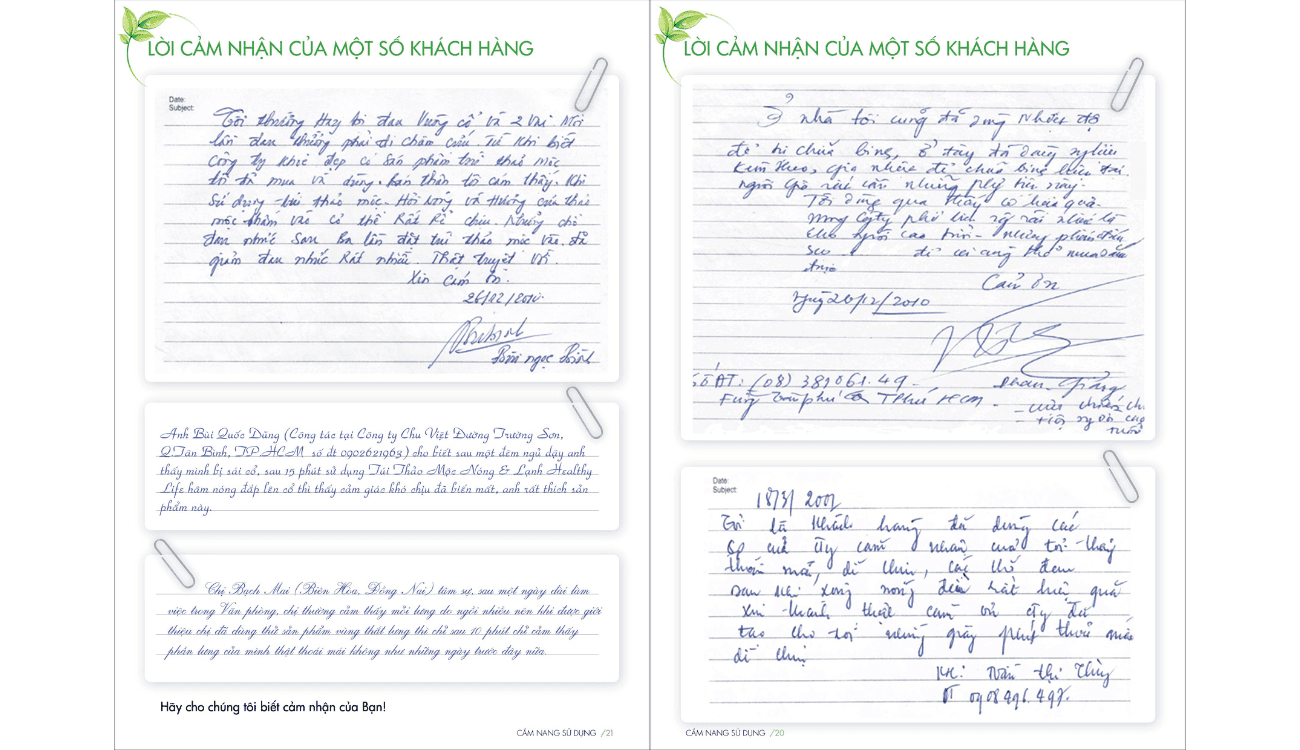 LỜI CẢM NHẬN CỦA MỘT SỐ KHÁCH HÀNG
Date:
Subject:
Tôi thường Hay bị đau Vường cổ và 2 Vai Mỗi
lần đau thường phải đi châm cứu. Từ Khi biết
Công ty Khỏe đẹp có Sản phẩm túi thảo mộc
tôi đã mua về dùng. bản thân tôi cảm thấy. Khi
Sử dụng túi thảo mộc. Hơi nóng và Hương của thảo
mộc thấm vào cơ thể Rất dễ chịu. Những chỗ
đau nhức Sau ba lần đặt túi thảo mộc vào. đã
giảm đau nhức Rất nhiều. Thật tuyệt vời.
Xin Cám ơn.
26/12/2010.
Bùi ngọc Bình
Anh Bùi Quốc Dũng (Công tác tại Công ty Chu Việt Đường Trường Sơn,
Q.Tân Bình, TP.HCM số đt 0902621963) cho biết sau một đêm ngủ dậy anh
thấy mình bị sái cổ, sau 15 phút sử dụng Túi Thảo Mộc Nóng & Lạnh Healthy
Life hâm nóng đắp lên cổ thì thấy cảm giác khó chịu đã biến mất, anh rất thích sản
phẩm này.
Chị Bạch Mai (Biên Hòa, Đồng Nai) tâm sự, sau một ngày dài làm
việc trong Văn phòng, chị thường cảm thấy mỏi lưng do ngồi nhiều nên khi được giới
thiệu chị đã dùng thử sản phẩm vùng thắt lưng thì chỉ sau 10 phút chị cảm thấy
phần lưng của mình thật thoải mái không như những ngày trước đây nữa.
Hãy cho chúng tôi biết cảm nhận của Bạn!
CẨM NANG SỬ DỤNG /21
LỜI CẢM NHẬN CỦA MỘT SỐ KHÁCH HÀNG
Ở nhà tôi cũng đã dùng Nhiều
để chữa bệnh, ở đây đã dùng
người già rất cần những
Tôi dùng qua thấy có hiệu quả.
mong Cty phổ biến rộng rãi nhất là
cho người cao tuổi
để ai cũng thể mua
được
Cảm ơn
Ngày 26/12/2010
Số ĐT: (08) 381061.49
Phú HCM
Date:
Subject:
18/3/2007
Tôi là Khách hàng đã dùng các
sp của Cty cảm nhận của tôi thấy
thoải mái, dễ chịu,
sau khi xông nóng rất hiệu quả
xin thành thật cảm ơn cty đã
tạo cho tôi những giây phút thoải mái
dễ chịu
KH: Trần thị Thủy
ĐT 0908496.497.
CẨM NANG SỬ DỤNG /20